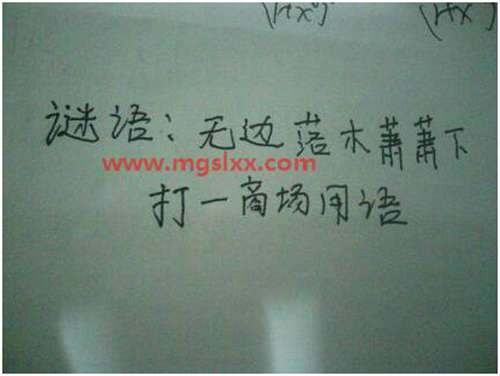 谜语：无边落木萧萧下
www.mgslxx.com
打一商场用语